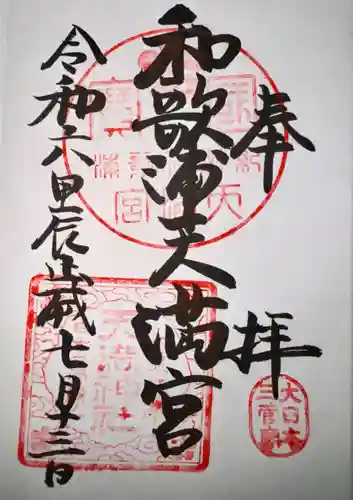 奉拝
和歌浦天満宮
令和六甲辰歳七月十三日
大日本
三菅廟